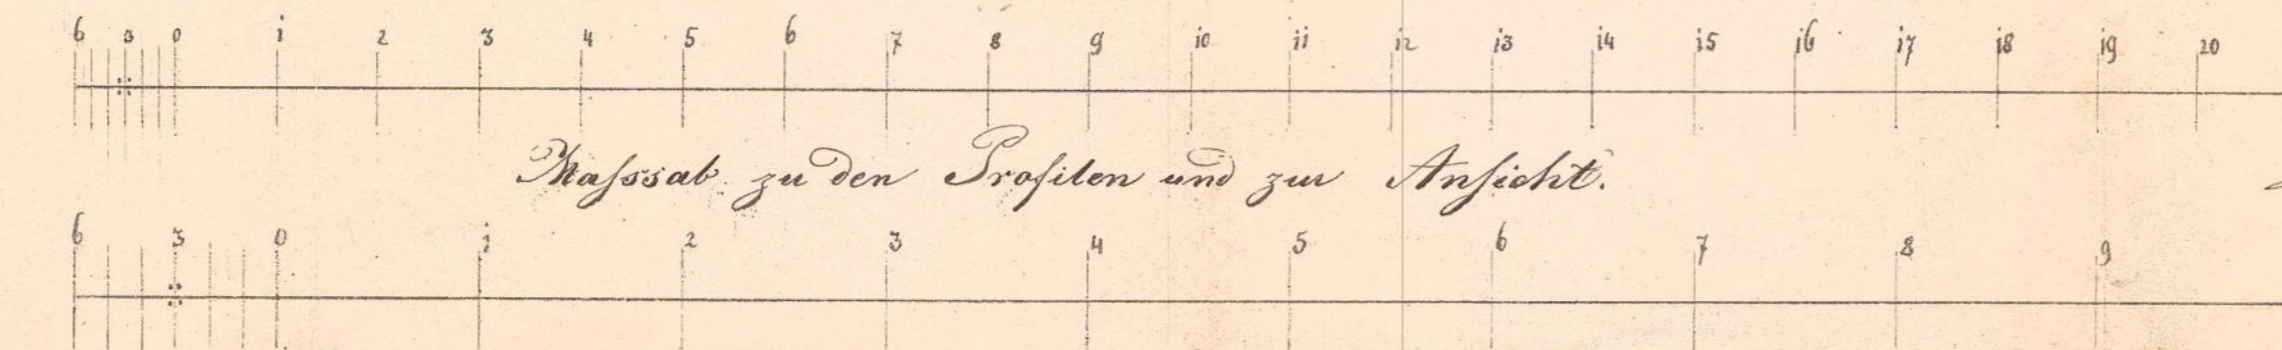 6 3 0 1 2 3 4 5 6 7 8 9 10 11 12 13 14 15 16 17 18 19 20
Maſssab zu den Profilen und zur Anſicht.
6 3 0 1 2 3 4 5 6 7 8 9